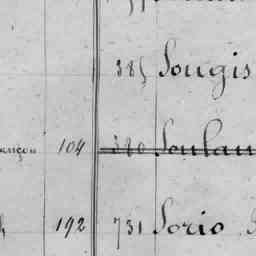 385 Sougis
104 380 Soulan
192 731 Sorio